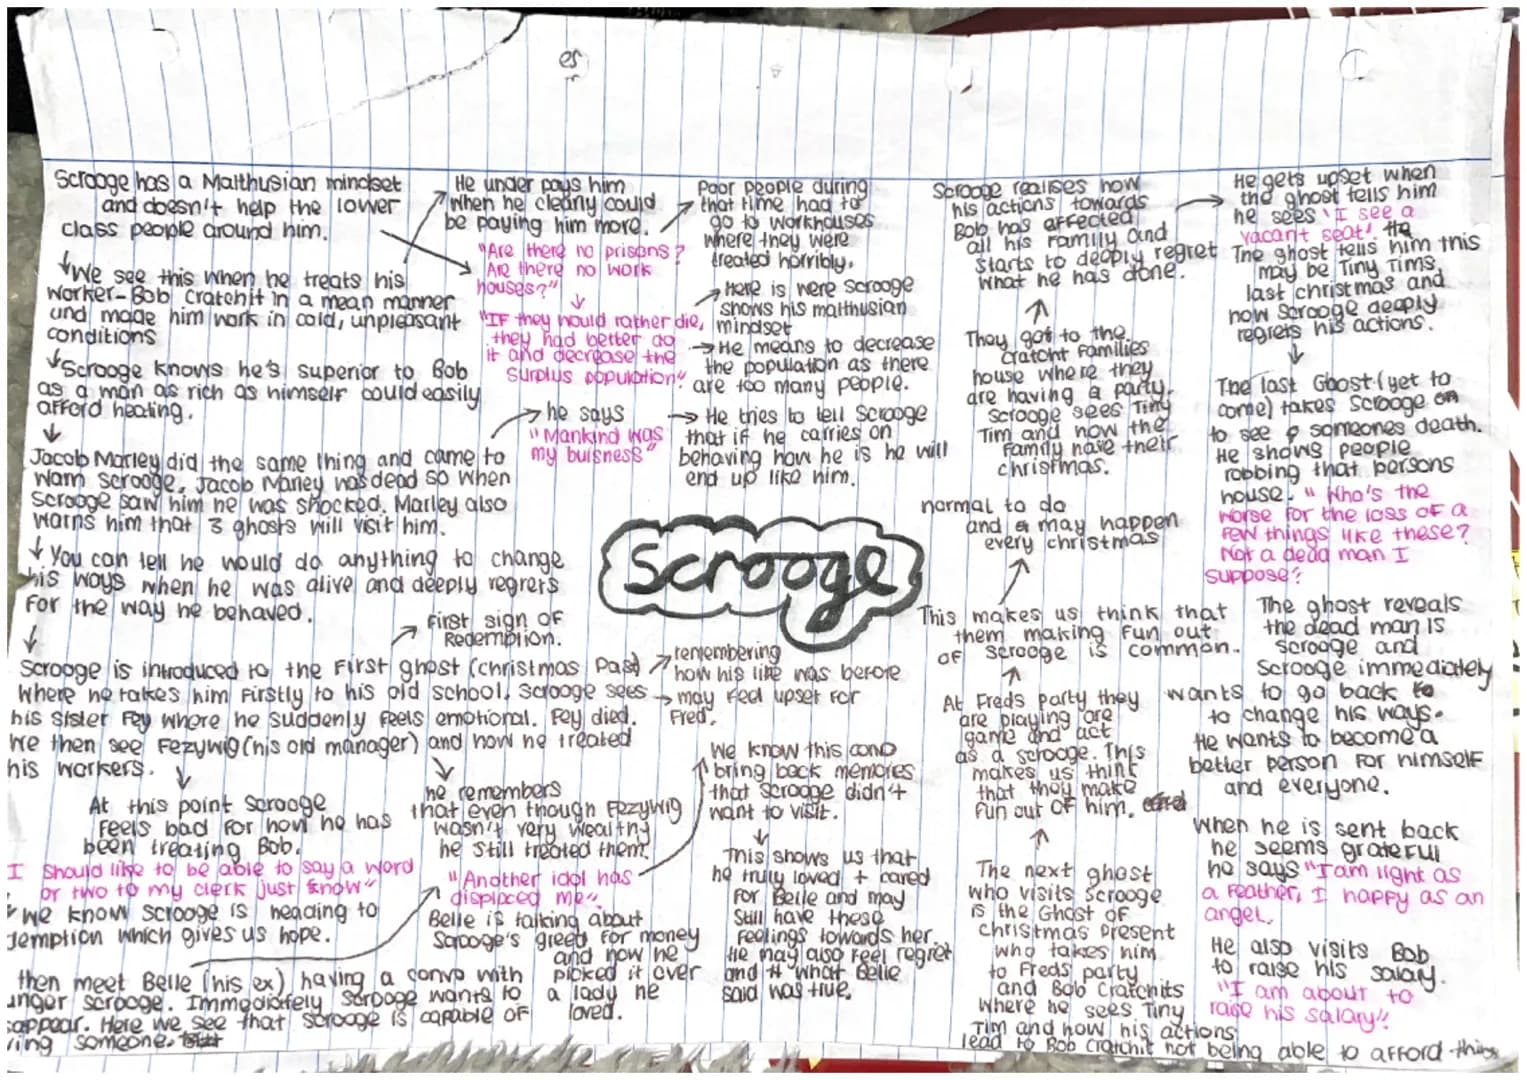 es
Scrooge has a Malthusian mindset
and doesn't help the lower
class people around him.
We see this when he treats his
worker-Bob Cratchit in a mean manner
and made him work in cold, unpleasant
conditions
Scrooge knows he's superior to Bob
as a man as rich as himself could easily
afford heating.
Jacob Marley did the same thing and came to
warn scrooge. Jacob Marley was dead so when
Scrooge saw him he was shocked. Marley also
warns him that 3 ghosts will visit him.
You can tell he would do anything to change
his ways when he was alive and deeply regrers
for the way he behaved.
Scrooge is introduced to the First ghost (christmas Past)
where he takes him Firstly to his old school. Scrooge sees
his sister Fey where he suddenly feels emotional. Fey died.
We then see Fezywig (his old manager) and how he treated
his workers.
First sign of
Redemption.
remembering
how his life was before
may feel upset for
Fred.
At this point Scrooge
feels bad for how he has
been treating Bob.
I should like to be able to say a word
or two to my clerk just know"
we know Scrooge is heading to
demption which gives us hope.
then meet Belle (his ex) having a convo with
unger scrooge. Immediately scrooge wants to
sappear. Here we see that scrooge is capable of
ving someone.
he remembers
that even though Fezywig
wasn't very wealthy
he still treated them.
"Another idol has
displaced me".
Belle is talking about
Scrooge's greed for money
and how he
picked it over
a lady he
loved.
We know this cono
bring back memories
that Scrooge didn't
want to visit.
This shows us that
he truly loved + cared
for Belle and may
still have these
feelings towards her.
He may also feel regret
and # what Belle
said was true.
He under pays him
when he clearly could
be paying him more.
"Are there no prisons?
Are there no work
houses?"
"IF they would rather die,
they had better do
it and decrease the
surplus population".
he says
"Mankind was
my buisness"
Poor people during
that time had to
go to workhouses
where they were
treated horribly.
Here is were Scrooge
shows his malthusian
mindset
He means to decrease
the population as there
are too many people.
He tries to tell Scrooge
that if he carries on
behaving how he is he will
end up like him.
Scrooge
The next ghost
who visits Scrooge
is the Ghost of
christmas Present
who takes him
to Freds party
and Bob Cratchits
where he sees Tiny
Tim and how his actions
lead to Bob Cratchit not being able to afford things
At Freds party they
are playing are
game and act
as a scrooge. This
makes us think
that they make
fun out of him.
This makes us think that
them making fun out
of scrooge is common.
normal to do
and may happen
every christmas
They got to the
cratcht families
house where they
are having a party.
Scrooge sees Tiny
Tim and how the
family have their
christmas.
Scrooge realises how
his actions towards
Bob has affected
all his Family and
starts to deeply regret
what he has done.
He gets upset when
the ghost tells him
he sees "I see a
vacant seat". the
The ghost tells him this
may be Tiny Tims
last christmas and
now Scrooge deeply
regrets his actions.
The last Ghost (yet to
come) takes scrooge on
to see someones death.
He shows people
robbing that persons
house. "Who's the
worse for the loss of a
few things like these?
Not a dead man I
suppose?
The ghost reveals
the dead man is
scrooge and
Scrooge immediately
wants to go back to
to change his ways.
He wants to become a
better person for himself
and everyone.
when he is sent back
he seems grateful
he says "I am light as
a feather, I happy as an
angel.
He also visits Bob
to raise his salary.
"I am about to
raise his salary".